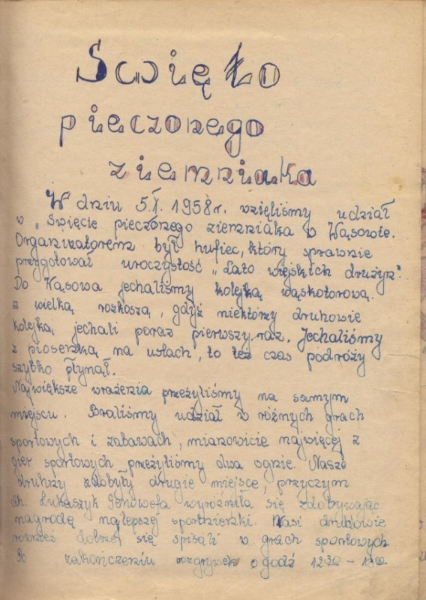 Święto
pieczonego
ziemniaka
W dniu 5.X. 1958r. wzięliśmy udział
w „Święcie pieczonego ziemniaka w Wąsowie.
Organizatorem był hufiec, który sprawnie
przygotował uroczystość „Lato wiejskich drużyn".
Do Wąsowa jechaliśmy kolejką wąskotorową.
z wielką rozkoszą, gdyż niektórzy druhowie
kolejką jechali poraz pierwszy raz. Jechaliśmy
z piosenką na ustach, to też czas podróży
szybko płynął.
Największe wrażenia przeżyliśmy na samym
miejscu. Braliśmy udział w różnych grach
sportowych i zabawach, mianowicie najwięcej z
gier sportowych przeżyliśmy dwa ognie. Nasze
druhny zdobyły drugie miejsce, przyczym
dh. Łukaszyk Genowefa wyróżniła się zdobywając
nagrodę najlepszej sportsmenki. Nasi druhowie
również dobrze się spisali w grach sportowych
Po zakończeniu rozgrywek o godź 12.30 -